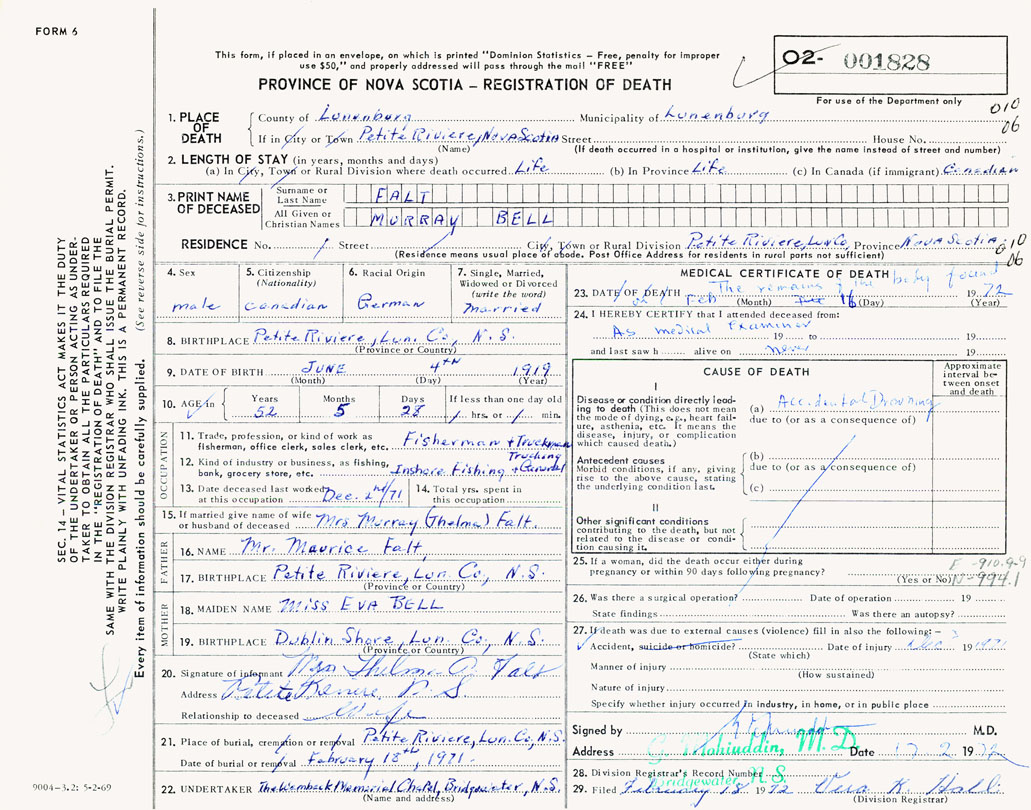 FORM 6
This form, if placed in an envelope, on which is printed "Dominion Statistics – Free, penalty for improper
use $50," and properly addressed will pass through the mail "FREE"
PROVINCE OF NOVA SCOTIA – REGISTRATION OF DEATH
O2- 001828
For use of the Department only
010
06
1. PLACE OF DEATH
County of Lunenburg Municipality of Lunenburg
If in City or Town Petite Riviere, Nova Scotia Street House No.
(Name) (If death occurred in a hospital or institution, give the name instead of street and number)
2. LENGTH OF STAY (in years, months and days)
(a) In City, Town or Rural Division where death occurred Life (b) In Province Life (c) In Canada (if immigrant) Canadian
3. PRINT NAME OF DECEASED
Surname or Last Name FALT
All Given or Christian Names MURRAY BELL
RESIDENCE No. Street City, Town or Rural Division Petite Riviere, Lun Co, Province Nova Scotia
(Residence means usual place of abode. Post Office Address for residents in rural parts not sufficient)
010
06
4. Sex male
5. Citizenship (Nationality) Canadian
6. Racial Origin German
7. Single, Married, Widowed or Divorced (write the word) Married
8. BIRTHPLACE Petite Riviere, Lun. Co, N.S.
(Province or Country)
9. DATE OF BIRTH JUNE 4th 1919
(Month) (Day) (Year)
10. AGE in Years 52 Months 5 Days 28 If less than one day old hrs. or min.
OCCUPATION
11. Trade, profession, or kind of work as fisherman, office clerk, sales clerk, etc. Fisherman + Truckman
12. Kind of industry or business, as fishing, bank, grocery store, etc. Inshore Fishing + Trucking General
13. Date deceased last worked at this occupation Dec. 2nd/71
14. Total yrs. spent in this occupation
15. If married give name of wife or husband of deceased Mrs Murray (Thelma) Falt.
FATHER
16. NAME Mr. Maurice Falt,
17. BIRTHPLACE Petite Riviere, Lun. Co, N.S.
(Province or Country)
MOTHER
18. MAIDEN NAME Miss EVA BELL
19. BIRTHPLACE Dublin Shore, Lun. Co, N.S.
(Province or Country)
20. Signature of informant Mrs Thelma Falt
Address Petite Riviere N.S.
Relationship to deceased Wife
21. Place of burial, cremation or removal Petite Riviere, Lun. Co, N.S.
Date of burial or removal February 18th, 1971.
22. UNDERTAKER Memorial Chapel, Bridgewater, N.S.
(Name and address)
MEDICAL CERTIFICATE OF DEATH
23. DATE OF DEATH The remains of the body found on Feb 16 1972
(Month) (Day) (Year)
24. I HEREBY CERTIFY that I attended deceased from:
As medical Examiner 19 to 19
and last saw h alive on never 19
CAUSE OF DEATH
Approximate interval between onset and death
I
Disease or condition directly leading to death (This does not mean the mode of dying, e.g., heart failure, asthenia, etc. It means the disease, injury, or complication which caused death.)
(a) Accidental Drowning
due to (or as a consequence of)
Antecedent causes
Morbid conditions, if any, giving rise to the above cause, stating the underlying condition last.
(b)
due to (or as a consequence of)
(c)
II
Other significant conditions
contributing to the death, but not related to the disease or condition causing it.
25. If a woman, did the death occur either during
pregnancy or within 90 days following pregnancy?
(Yes or No) N-994.1
26. Was there a surgical operation? Date of operation 19
State findings Was there an autopsy?
27. If death was due to external causes (violence) fill in also the following: –
Accident, suicide or homicide? Date of injury 1971
(State which)
Manner of injury
(How sustained)
Nature of injury
Specify whether injury occurred in industry, in home, or in public place
Signed by M.D.
Address G. Mohiuddin, M.D. Bridgewater N.S. Date 17 2 1972
28. Division Registrar's Record Number
29. Filed February 18 1972 Vera K.
(Division Registrar)
SEC. 14 – VITAL STATISTICS ACT MAKES IT THE DUTY
OF THE UNDERTAKER OR PERSON ACTING AS UNDER-
TAKER TO OBTAIN ALL THE PARTICULARS REQUIRED
IN THE "REGISTRATION OF DEATH" AND TO FILE THE
SAME WITH THE DIVISION REGISTRAR WHO SHALL ISSUE THE BURIAL PERMIT.
WRITE PLAINLY WITH UNFADING INK. THIS IS A PERMANENT RECORD.
Every item of information should be carefully supplied. (See reverse side for instructions.)
9004-3.2: 5-2-69